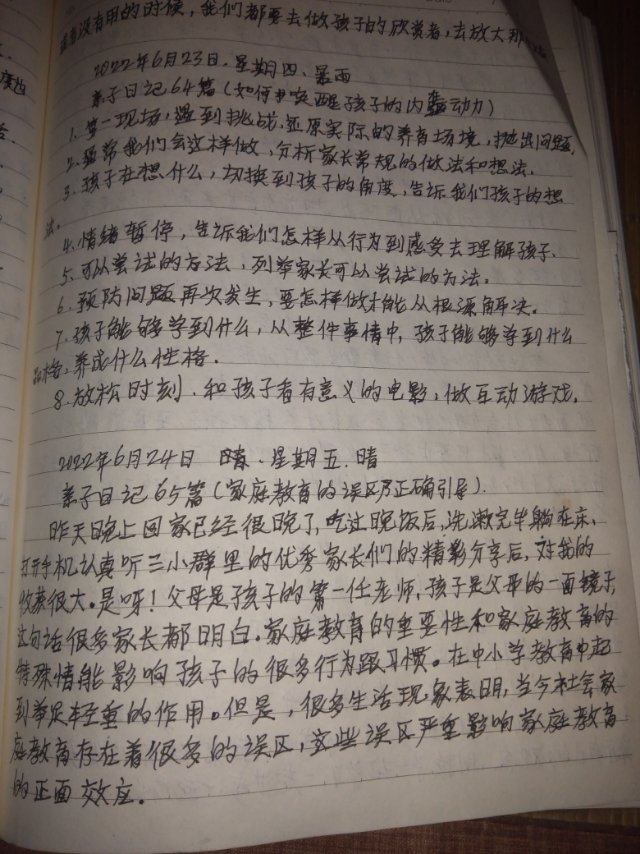 没有用的时候，我们都要去做孩子的欣赏者，去放大那
2022年6月23日.星期四.暴雨
亲子日记64篇（如何唤醒孩子的内驱动力）
1.第一现场，遇到挑战，还原实际的养育场境，抛出问题.
2.通常我们会这样做，分析家长常规的做法和想法.
3.孩子在想什么，切换到孩子的角度，告诉我们孩子的想
法。
4.情绪暂停，告诉我们怎样从行为到感受去理解孩子.
5.可以尝试的方法，列举家长可以尝试的方法。
6.预防问题再次发生，要怎样做才能从根源解决。
7.孩子能够学到什么，从整件事情中，孩子能够学到什么
品格，养成什么性格.
8.放松时刻.和孩子看有意义的电影，做互动游戏.
2022年6月24日 晴.星期五.晴
亲子日记65篇（家庭教育的误区乃正确引导）.
昨天晚上回家已经很晚了，吃过晚饭后，洗漱完毕躺在床.
打开手机认真听三小群里的优秀家长们的精彩分享后，对我的
收获很大。是呀！父母是孩子的第一任老师，孩子是父母的一面镜子，
这句话很多家长都明白.家庭教育的重要性和家庭教育的
特殊情能影响孩子的很多行为跟习惯。在中小学教育中起
到举足轻重的作用。但是，很多生活现象表明，当今社会家
庭教育存在着很多的误区，这些误区严重影响家庭教育
的正面效应。